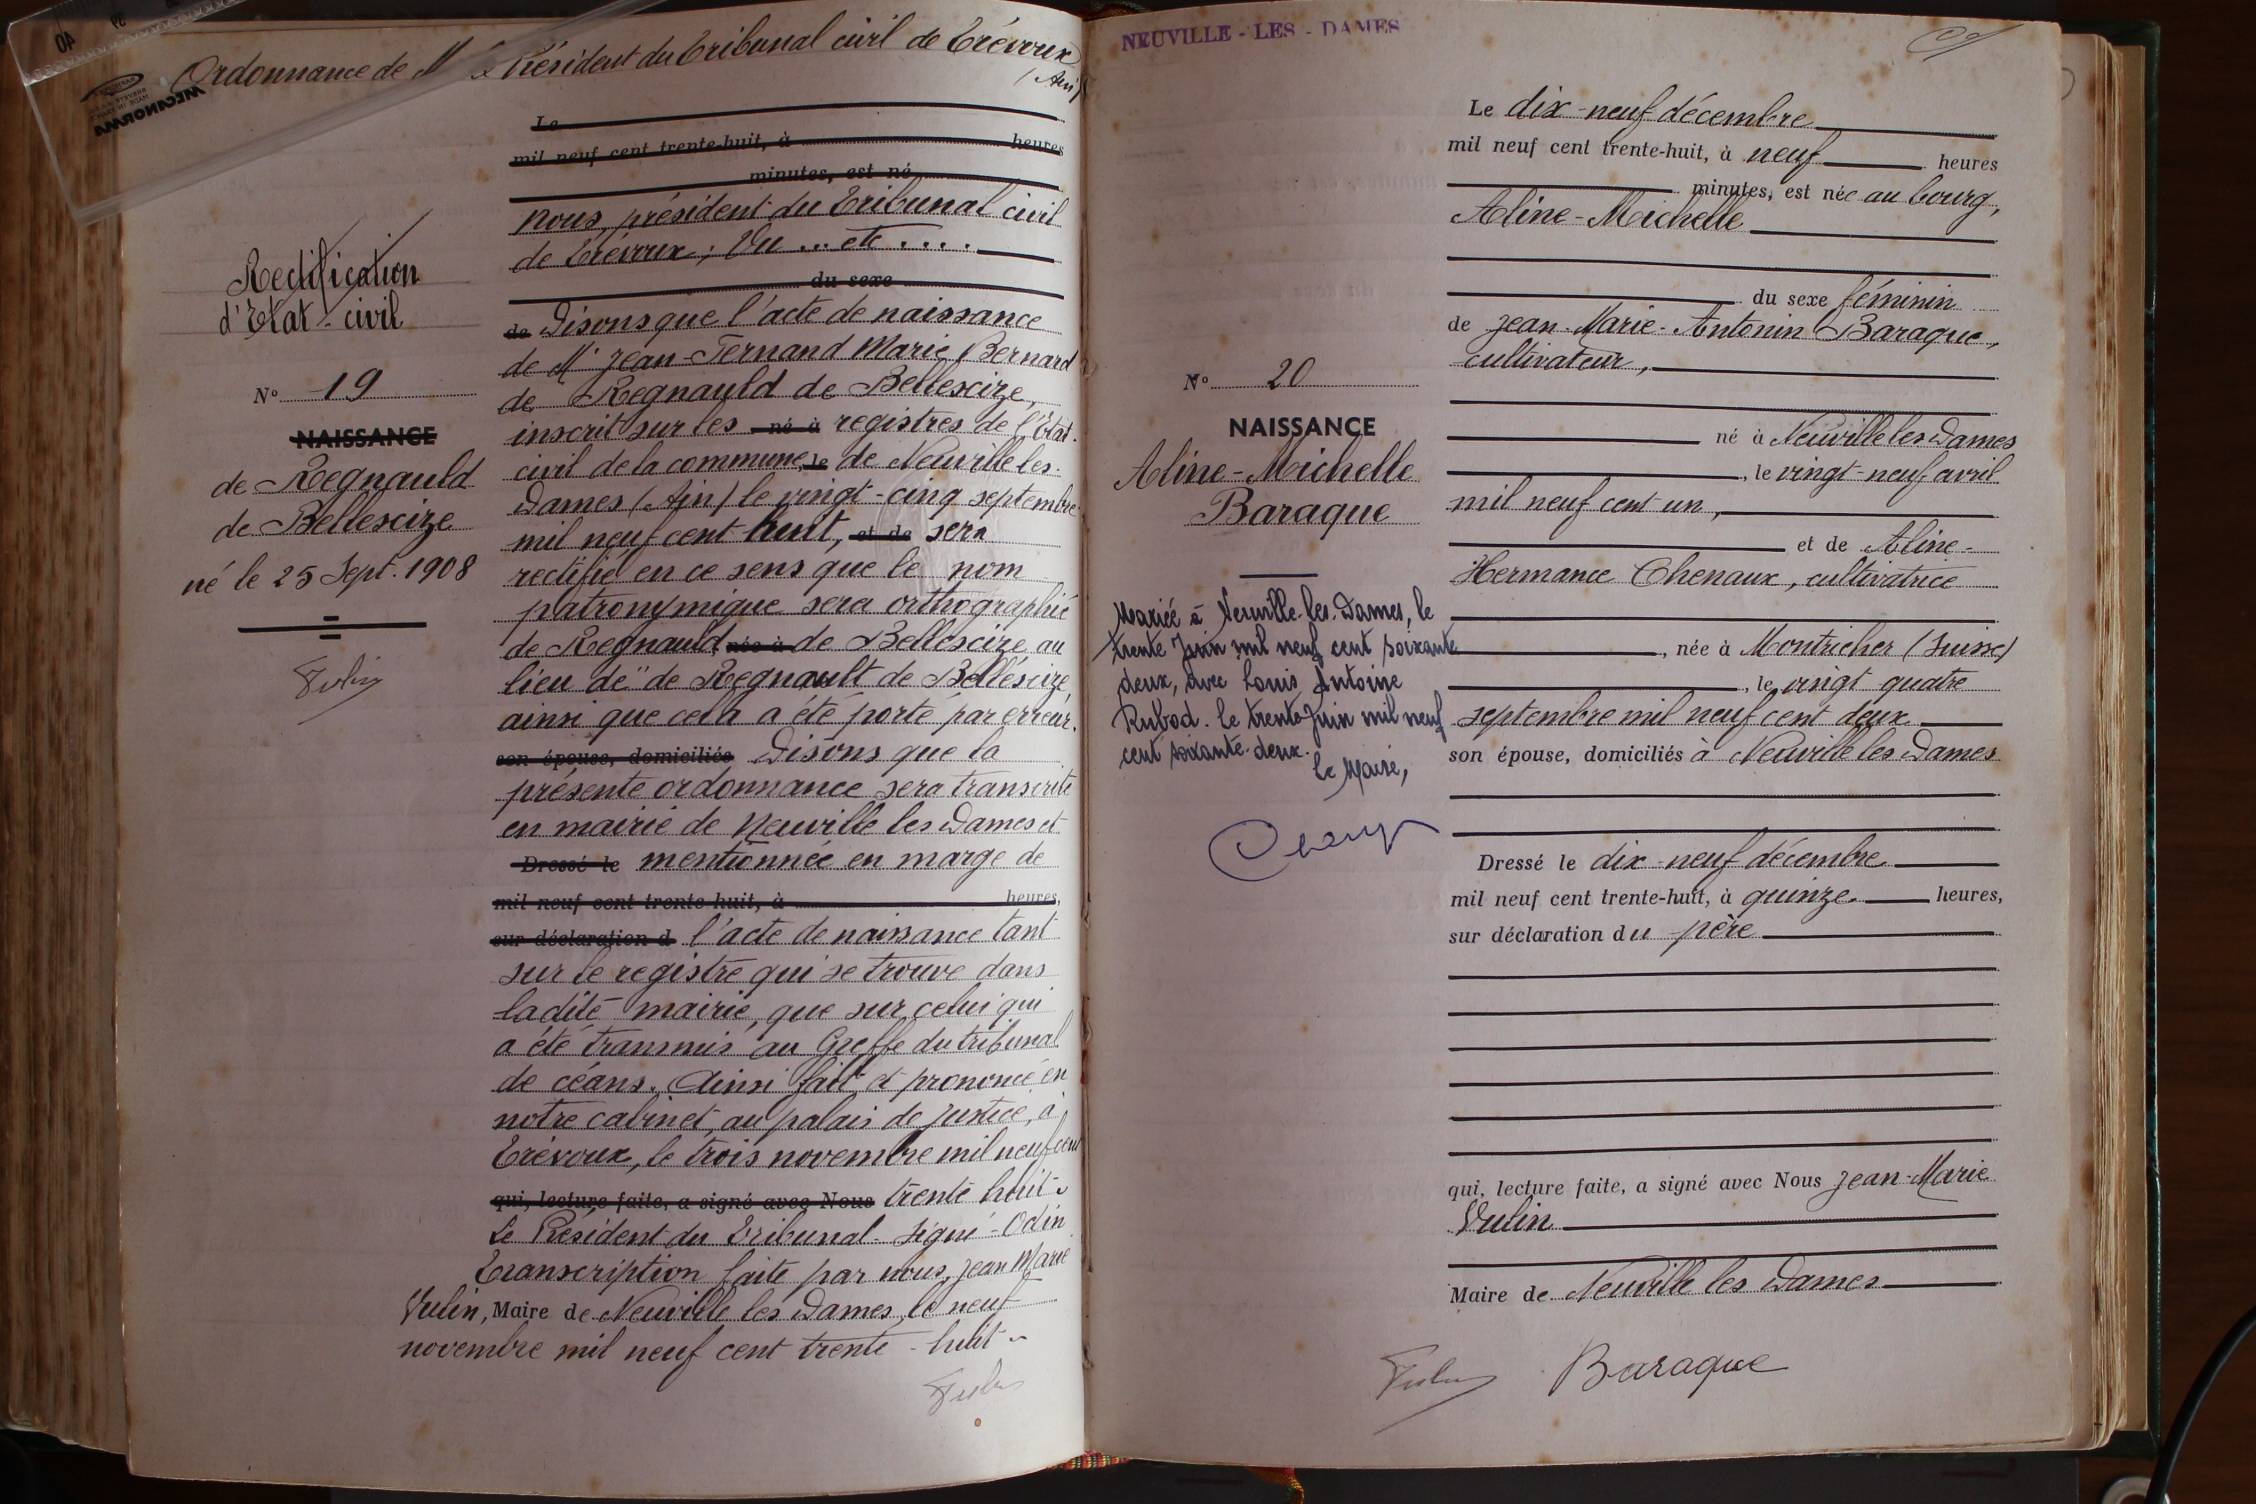 Ordonnance de M. le Président du Tribunal civil de Trévoux
(Ain)
Le
mil neuf cent trente-huit, à heures
minutes, est né
Nous, président du Tribunal civil
de Trévoux ; Vu ... etc ....
du sexe
de Disons que l'acte de naissance
de Mr Jean-Fernand Marie Bernard
de Regnauld de Bellescize,
inscrit sur les né à registres de l'Etat-
civil de la commune, le de Neuville les-
Dames (Ain) le vingt-cinq septembre
mil neuf cent huit, et de sera
rectifié en ce sens que le nom
patronymique sera orthographié
de Regnauld née à de Bellescize au
lieu de "de Regnault de Bellescize,
ainsi que cela a été porté par erreur.
son épouse, domiciliés Disons que la
présente ordonnance sera transcrite
en mairie de Neuville les Dames et
Dressé le mentionnée en marge de
mil neuf cent trente-huit, à heures,
sur déclaration d l'acte de naissance tant
sur le registre qui se trouve dans
ladite mairie, que sur celui qui
a été transmis au Greffe du tribunal
de céans. Ainsi fait et prononcé en
notre cabinet, au palais de justice, à
Trévoux, le trois novembre mil neuf cent
qui, lecture faite, a signé avec Nous trente huit.
Le Président du Tribunal. Signé - Odin
Transcription faite par nous, Jean Marie
Vulin, Maire de Neuville les Dames, le neuf
novembre mil neuf cent trente-huit
Vulin
Rectification
d'Etat-civil
No 19
NAISSANCE
de Regnauld
de Bellescize
né le 25 Sept. 1908
Vulin
MECANORMA
40
NEUVILLE-LES-DAMES
Le dix-neuf décembre
mil neuf cent trente-huit, à neuf heures
minutes, est née au bourg,
Aline-Michelle
du sexe féminin
de Jean-Marie-Antonin Baraque,
cultivateur,
né à Neuville les Dames
, le vingt-neuf avril
mil neuf cent un,
et de Aline-
Hermance Chenaux, cultivatrice
, née à Montricher (Suisse)
, le vingt quatre
septembre mil neuf cent deux
son épouse, domiciliés à Neuville les Dames
Dressé le dix-neuf décembre
mil neuf cent trente-huit, à quinze heures,
sur déclaration du père
qui, lecture faite, a signé avec Nous Jean-Marie
Vulin
Maire de Neuville les Dames
Vulin Baraque
No 20
NAISSANCE
Aline-Michelle
Baraque
Mariée à Neuville-les-Dames, le
trente Juin mil neuf cent soixante
deux, avec Louis Antoine
Rubod. le trente Juin mil neuf
cent soixante-deux.
Le Maire,